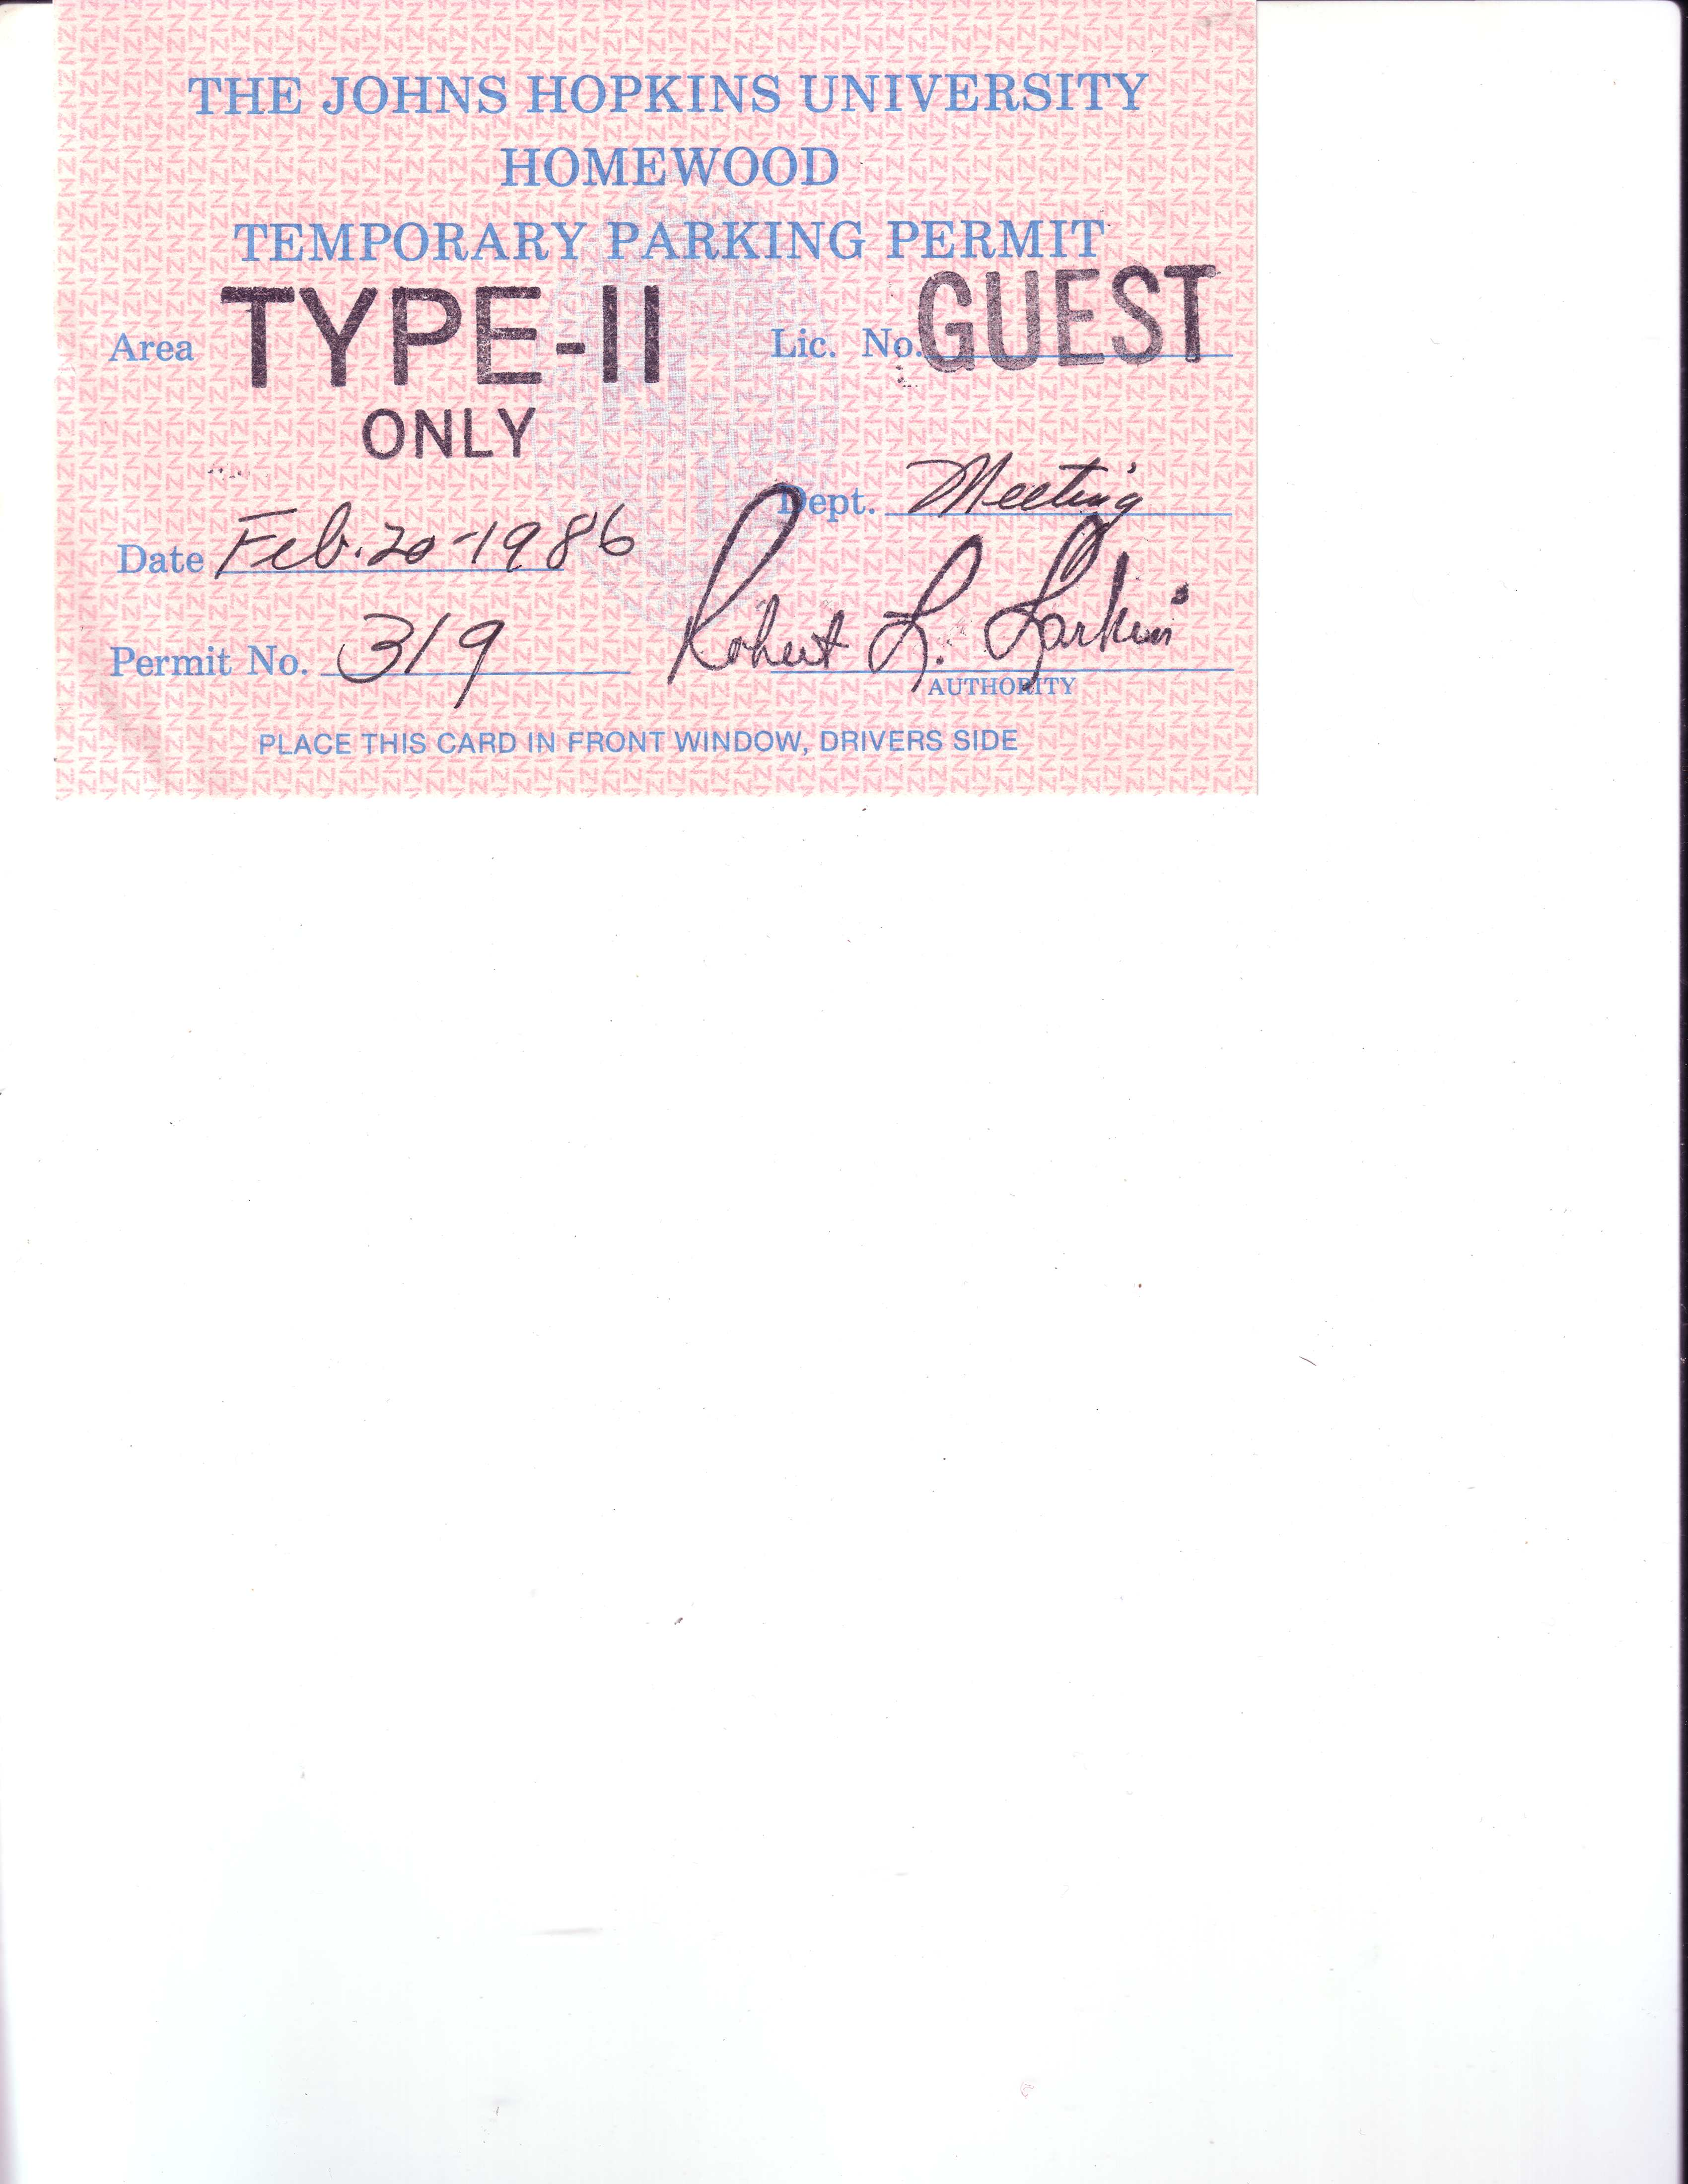 THE JOHNS HOPKINS UNIVERSITY
HOMEWOOD
TEMPORARY PARKING PERMIT
Area TYPE-II Lic. No. GUEST
ONLY
Dept. Meeting
Date Feb. 20-1986
Permit No. 319 Robert L. Larkin
AUTHORITY
PLACE THIS CARD IN FRONT WINDOW, DRIVERS SIDE